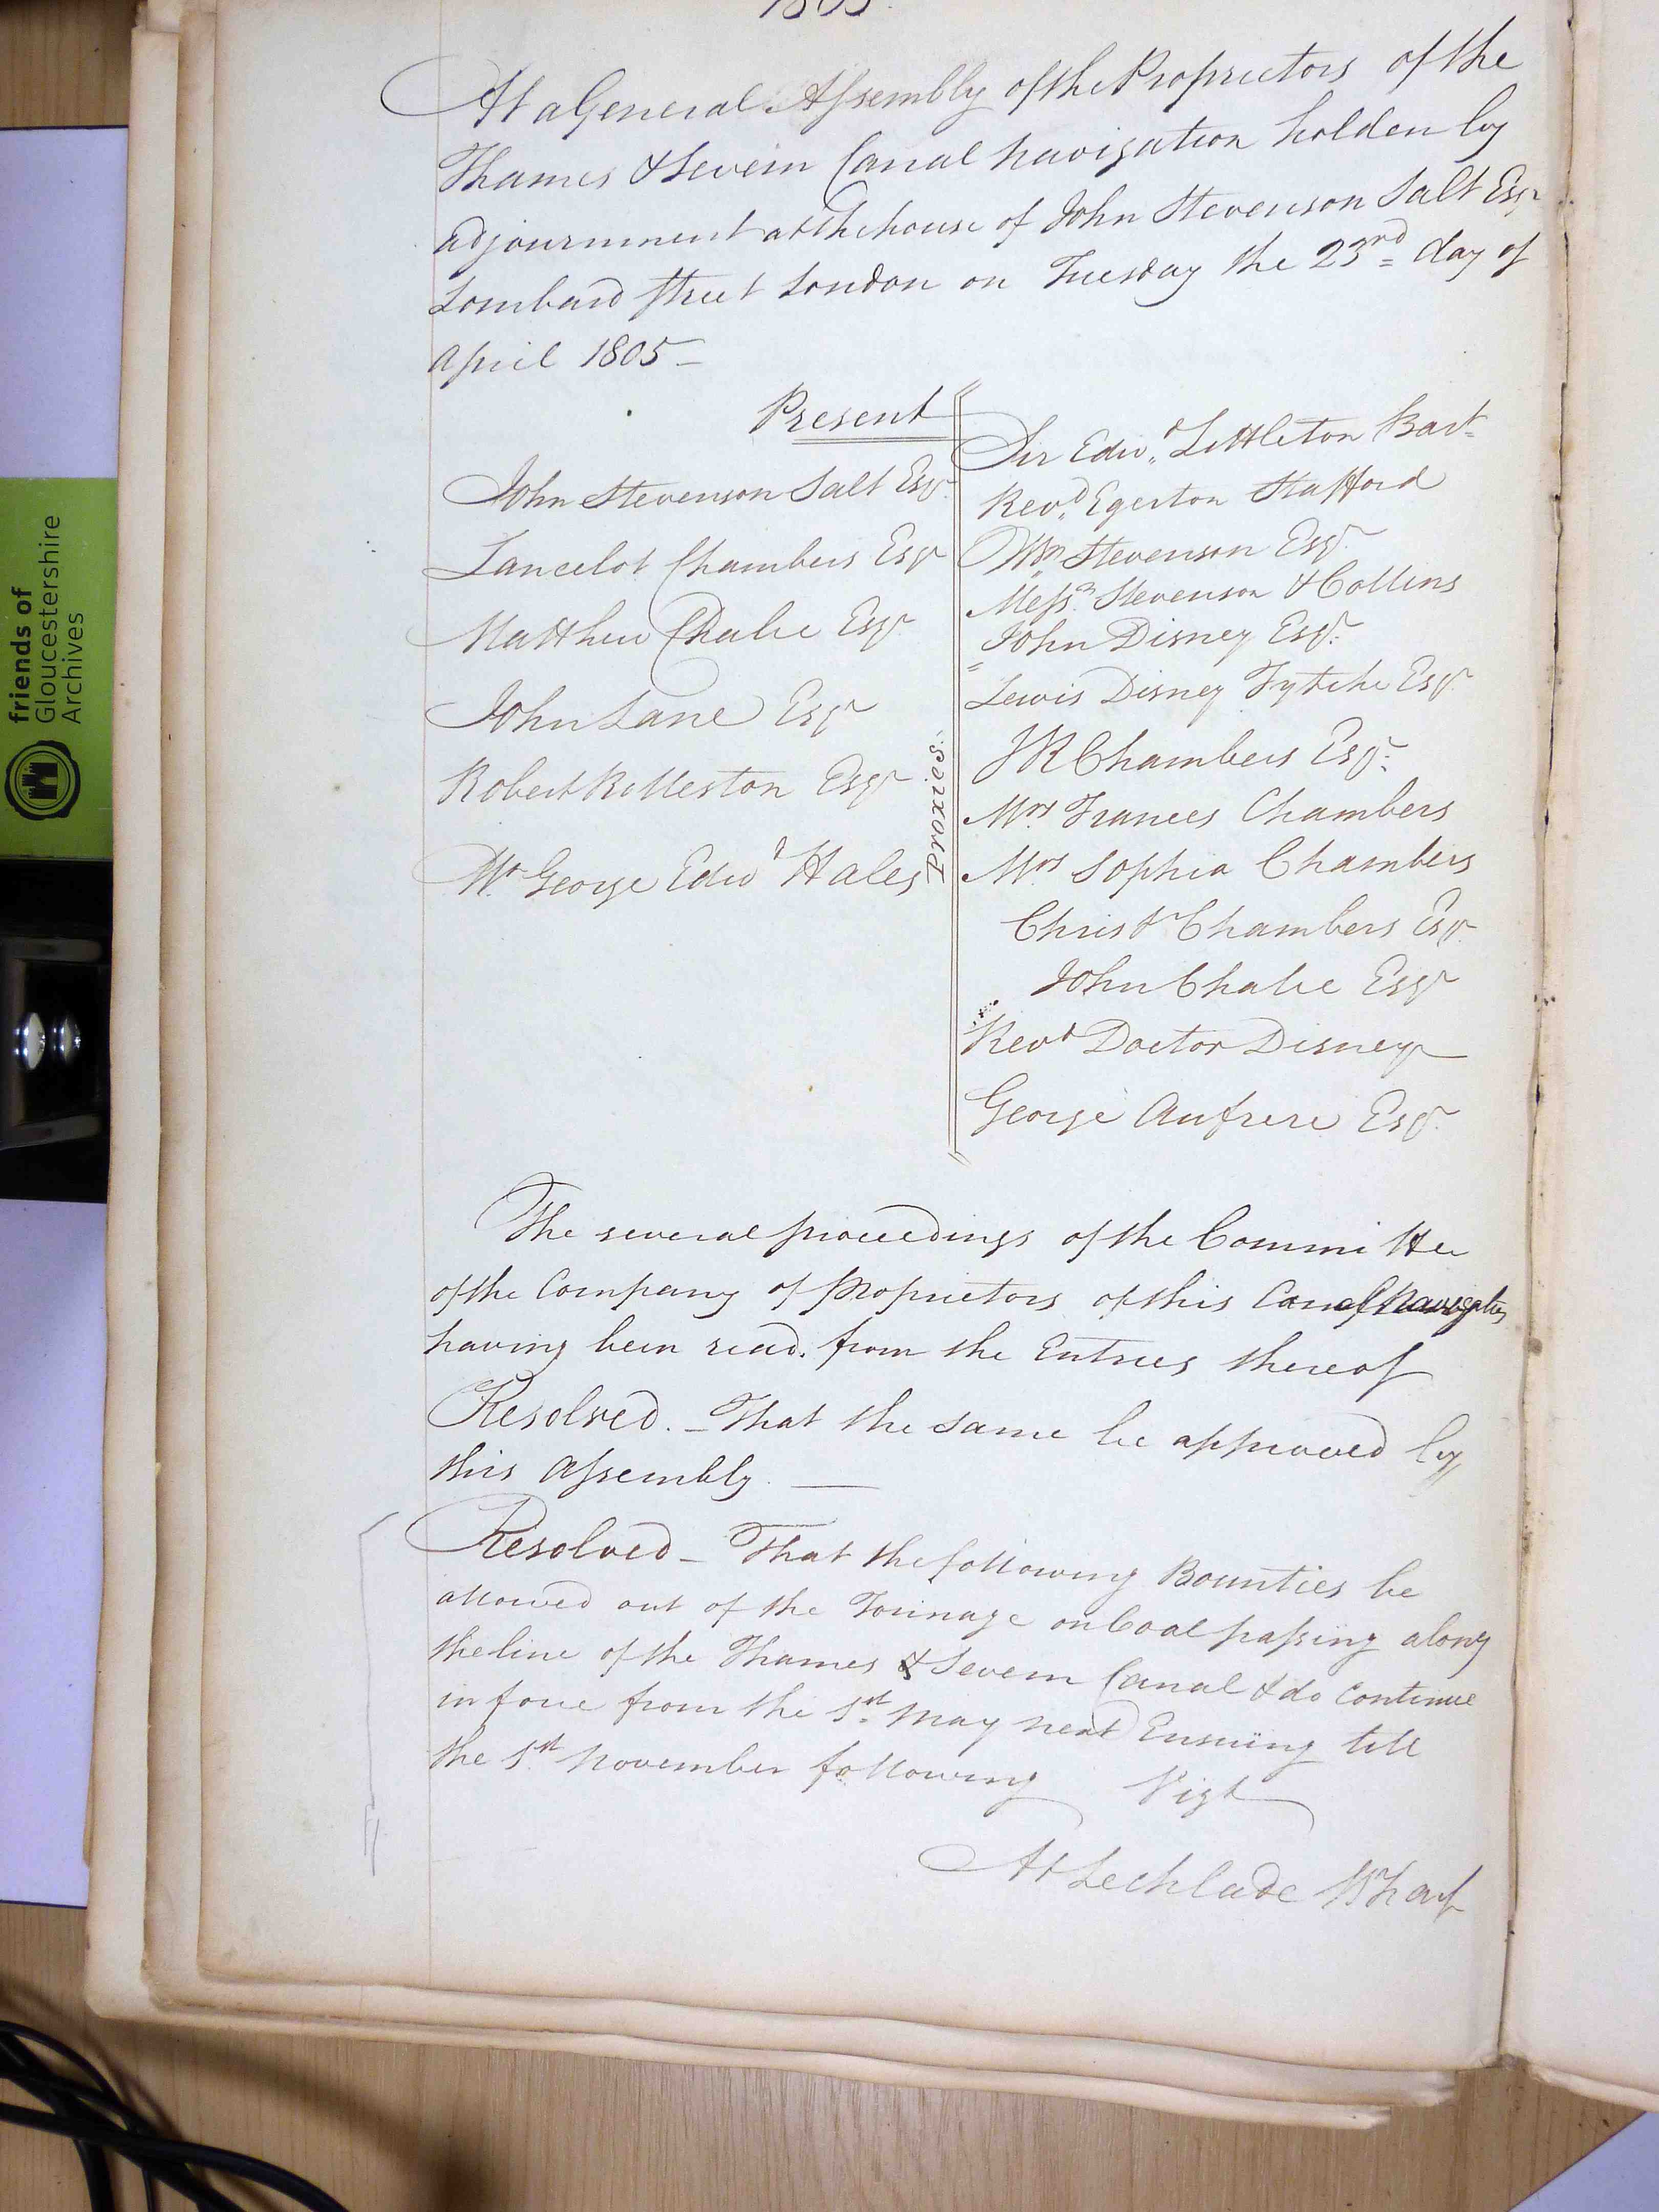 1805.
At a General Assembly of the Proprietors of the
Thames & Severn Canal navigation holden by
adjournment at the house of John Stevenson Salt Esqr
Lombard Street London on Tuesday the 23rd day of
April 1805 –
Present
John Stevenson Salt Esqr
Lancelot Chambers Esqr
Matthew Chalie Esqr
John Lane Esqr
Robert Rolleston Esqr
Mr George Edwd Hales
Proxies.
Sir Edwd. Littleton Bart
Revd. Egerton Stafford
Wm Stevenson Esqr.
Messrs. Stevenson & Collins
John Disney Esqr.
Lewis Disney Fytche Esqr
J R Chambers Esqr.
Mrs Frances Chambers
Mrs Sophia Chambers
Christr Chambers Esqr.
John Chalie Esqr
Revd Doctor Disney
George Aufrere Esqr.
The several proceedings of the Committee
of the Company of Proprietors of this Canal Navigation
having been read. from the Entries thereof
Resolved. – That the same be approved by
this Assembly. —
Resolved – That the following Bounties be
allowed out of the Tonnage on Coal passing along
the line of the Thames & Severn Canal & do continue
in force from the 1st. May next Ensuing till
the 1st. November following Vizt
At Lechlade Wharf
friends of
Gloucestershire
Archives